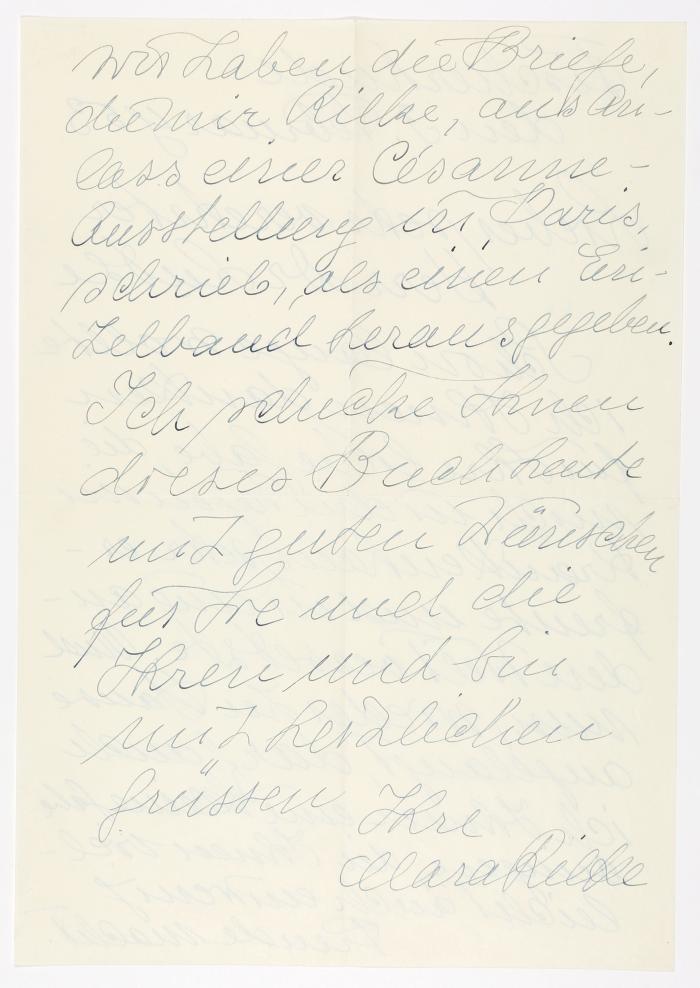 wir haben die Briefe,
die mir Rilke, aus An-
lass einer Césanne-
Ausstellung in Paris,
schrieb, als einen Ein-
zelband herausgegeben.
Ich schicke Ihnen
dieses Buch heute
mit guten Wünschen
für Sie und die
Ihren und bin
mit herzlichen
grüssen
Ihre
Clara Rilke